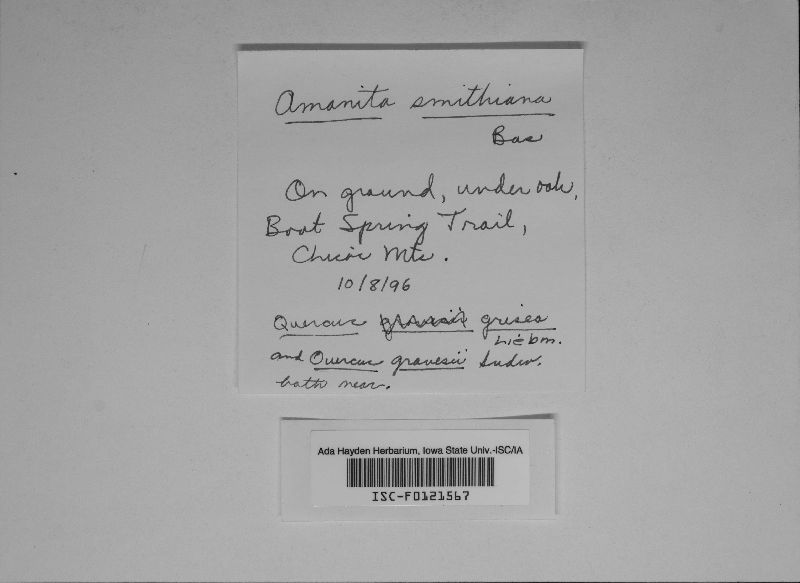 Amanita smithiana
Bas
On ground, under oak,
Boot Spring Trail,
Chisos Mts.
10/8/96
Quercus grisea
Liebm.
and Quercus gravesii Sudw.
both near.
Ada Hayden Herbarium, Iowa State Univ.-ISC/IA
ISC-F0121567